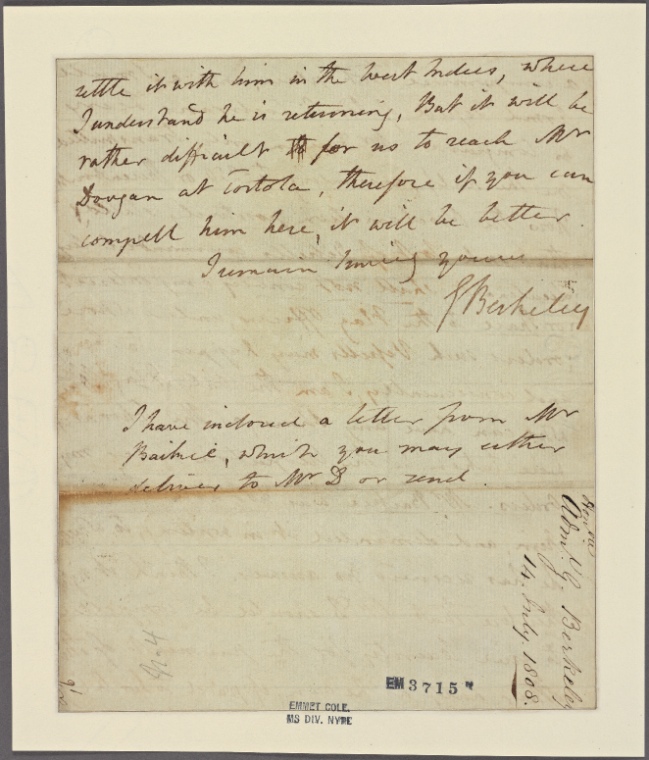 settle it with him in the West Indies, where
I understand he is returning, But it will be
rather difficult for us to reach Mr
Dougan at Tortola, therefore if you can
compell him here, it will be better.
I remain truely yours
G Berkeley
I have inclosed a letter from Mr
Baikie, which you may either
deliver to Mr D or send.
Adml. G. Berkeley
14. July 1808.
EM 3715
EMMET COLL.
MS DIV. NYPL